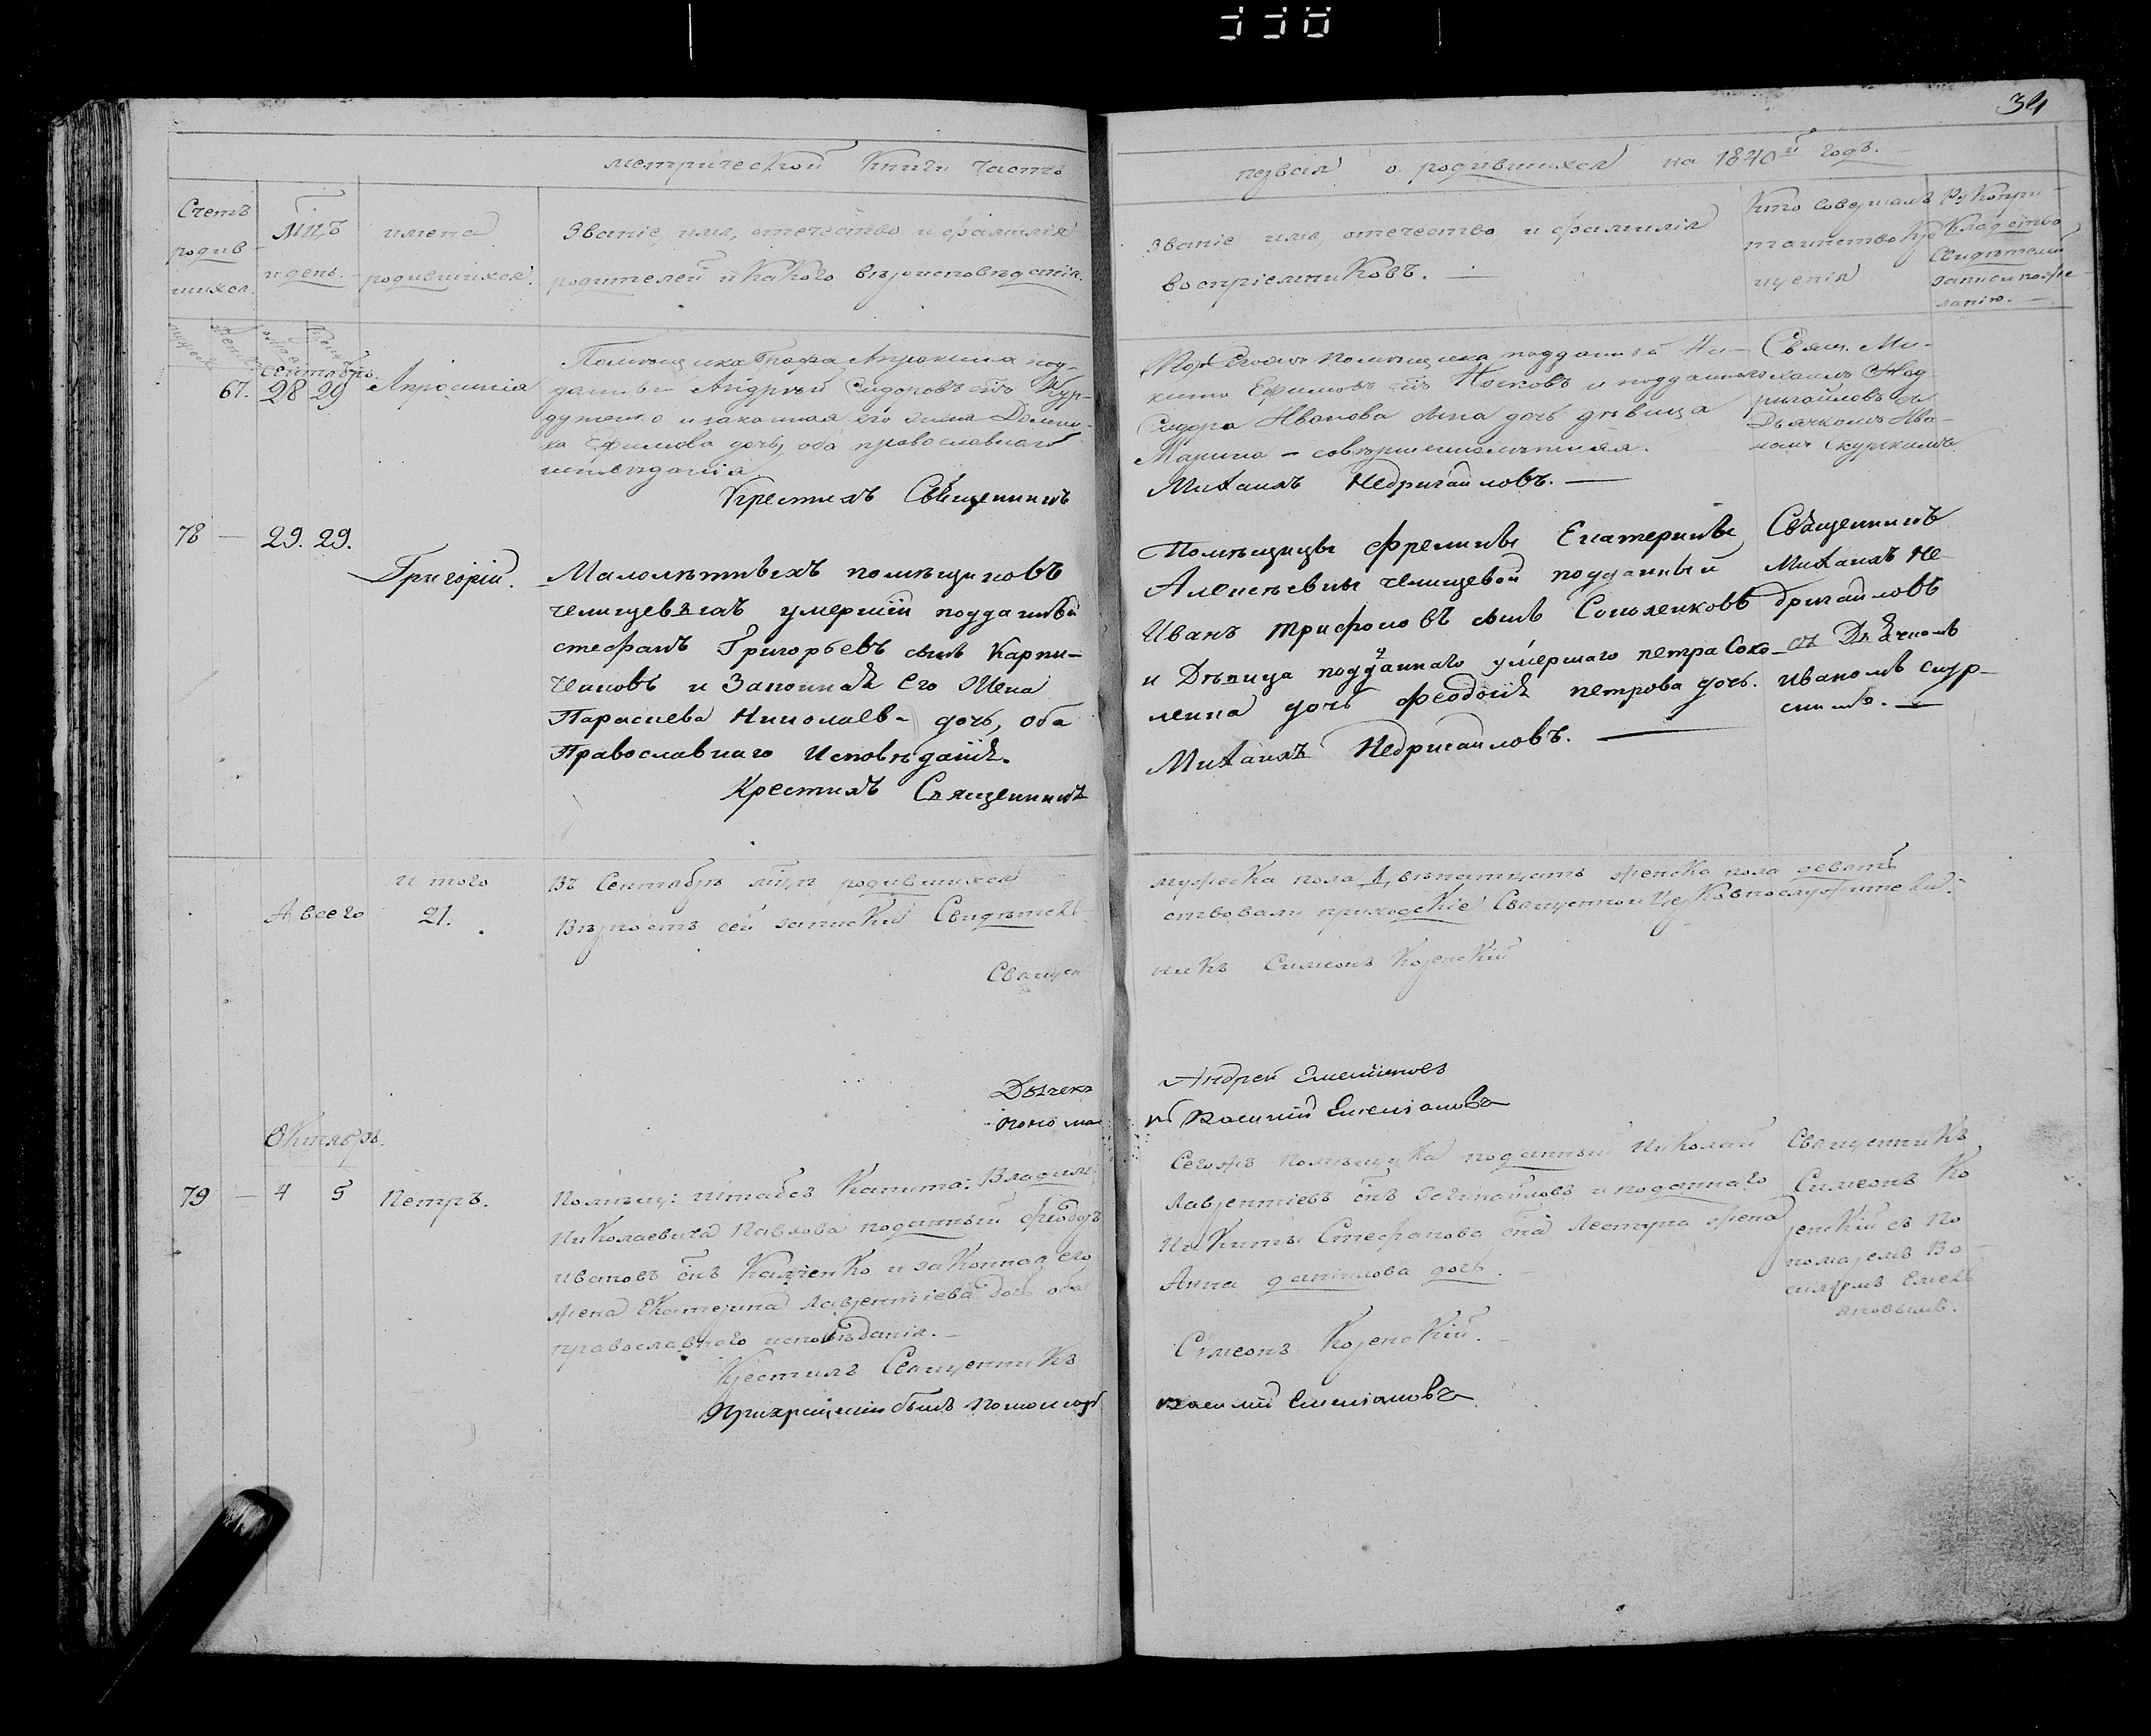 34
метрической Книги часть
первая о родившихся на 1840й годъ.
Счетъ родив шихся.
Мцъ и день.
имена родившихся.
Званіе, имя, отечество и фамилія
родителей и Какого вѣроисповѣданія.
Званіе имя, отечество и фамилія
воспріемниковъ.
Кто совершалъ
таинство Кре
щенія
РуКопри
Кладство
Свидѣтелей
записи по же
ланію.
Сентябрь.
67. 28 29
Апросинія
Помѣщика Графа Апраксина под-
данный Андрей Сидоровъ снъ
и законная его жена Домни-
ка Ефимова дочь, оба православнаго
исповѣданія
Крестилъ Священникъ
помѣщика подданный Ни-
кита Ефимовъ снъ Носковъ и подданнаго
Сидора Иванова дочь дѣвица
Марина - совершеннолѣтняя.
Михаилъ Недригайловъ.
Свящ. Ми-
хаилъ Нед-
ригайловъ съ
Дьячкомъ Ива-
номъ
78 — 29. 29.
Григорій.
Малолѣтныхъ помѣщиковъ
Челищевыхъ умершій подданный
Стефанъ Григорьевъ сынъ Карпи-
ченковъ и Законная Его Жена
Параскева Николаев- дочь, оба
Православнаго Исповѣданія.
Крестилъ Священникъ
Помѣщицы Фрелины Екатерины
Алексѣевны Челищевой подданный
Иванъ Трифоновъ сынъ Соколенковъ
и Дѣвица подданнаго умершаго Петра Соко-
ленка дочь Феодосія Петрова дочь.
Михаилъ Недригайловъ.
Священникъ
Михаилъ Не-
дригайловъ
съ Дьячкомъ
Иваномъ Скур-
скимъ.
и того
А всего 21.
Въ Сентябрѣ мцѣ родившихся
мужеска пола двѣнатцать женска пола девять
Вѣрность сей записки Свидѣтель-
ствовали приходскіе Священно и Церковнослужители:
Священ
никъ Симеонъ Коренскій
Дьячекъ
Андрей Емельяновъ
Понома
рь Василий Емелиановъ
Октябрь.
79 — 4 5 Петръ.
Помѣщ: штабсъ Капита: Владими:
Николаевича Павлова поданный Феодоръ
Ивановъ снъ и законная его
жена Екатерина Лаврентіева дочь оба
православнаго исповѣданія.
Крестилъ Священникъ
При крещении былъ Пономарь
Сегожъ помѣщика поданный Николай
Лаврентіевъ снъ и поданнаго
Никиты Стефанова сна жена
Анна даниилова дочь.
Симеонъ Коренскій.
Василий Емелиановъ
Священникъ
Симеонъ Ко
ренскій съ По
номаремъ Ва
силіемъ Емель
яновымъ.